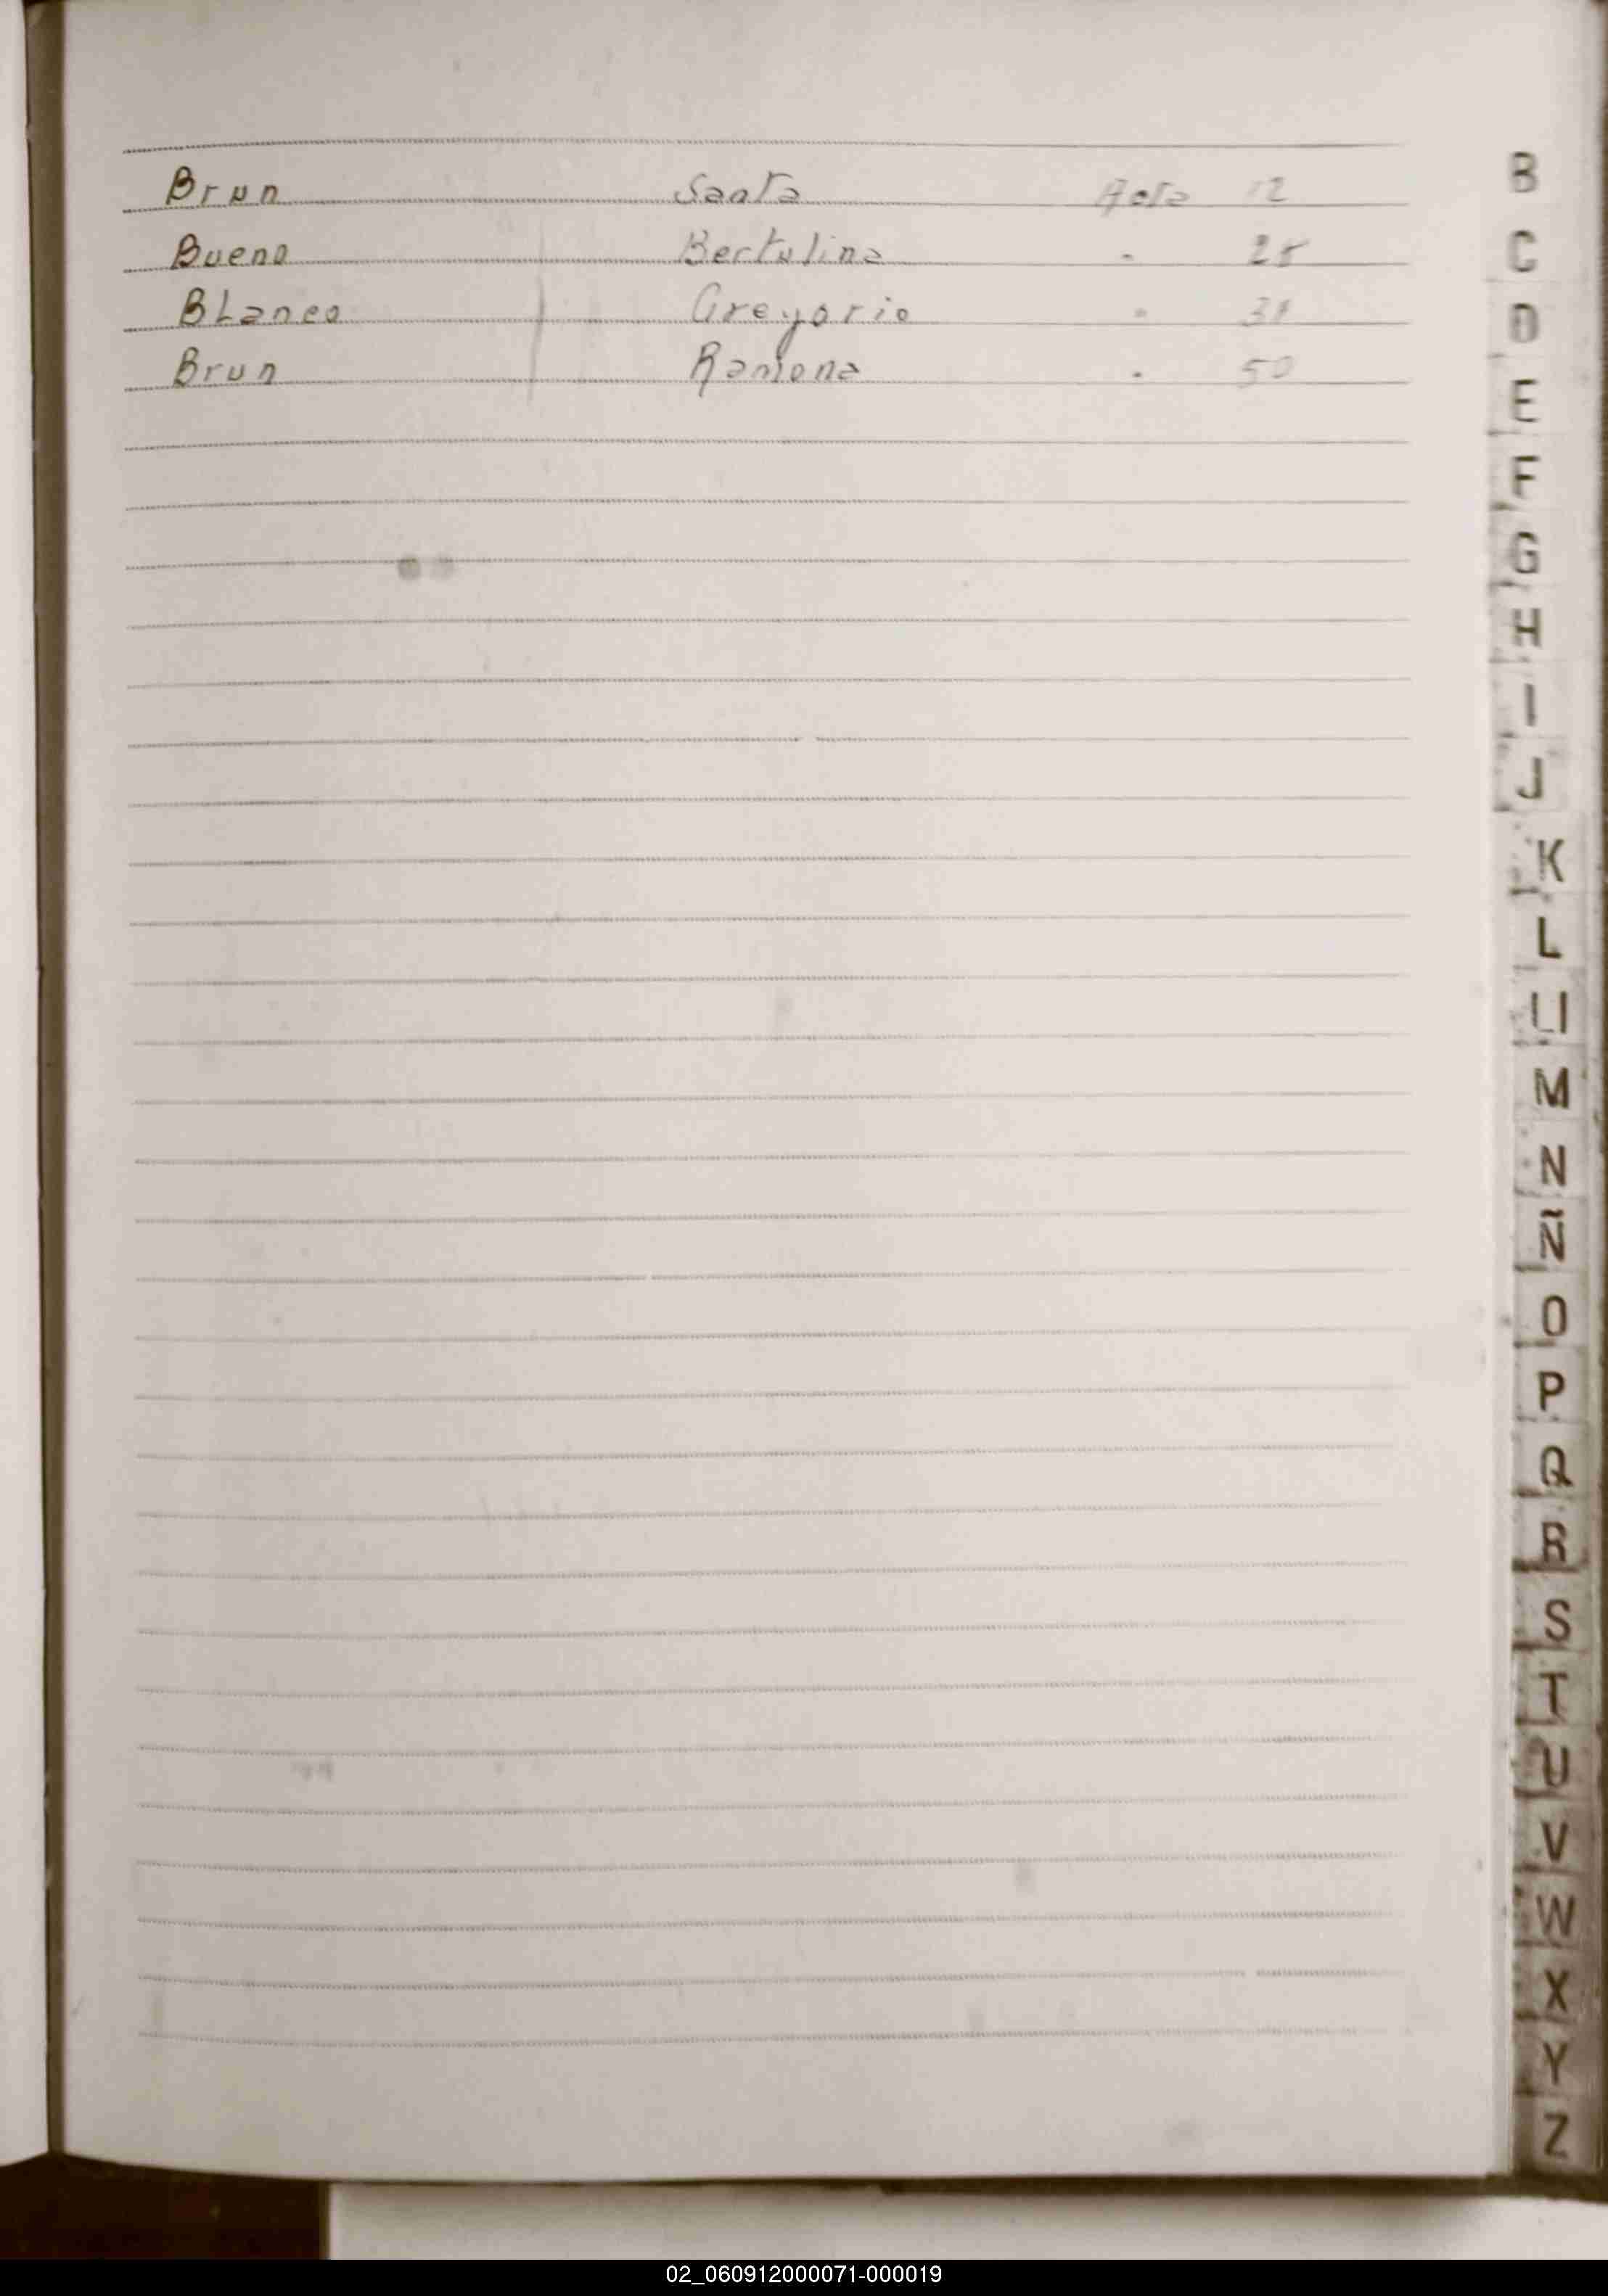 Brun Santa Acta 12
Bueno Bertulina " 28
BLanco Gregorio "
Brun Ramona " 50
B
C
D
E
F
G
H
I
J
K
L
LL
M
N
Ñ
O
P
Q
R
S
T
U
V
W
X
Y
Z
02_060912000071-000019